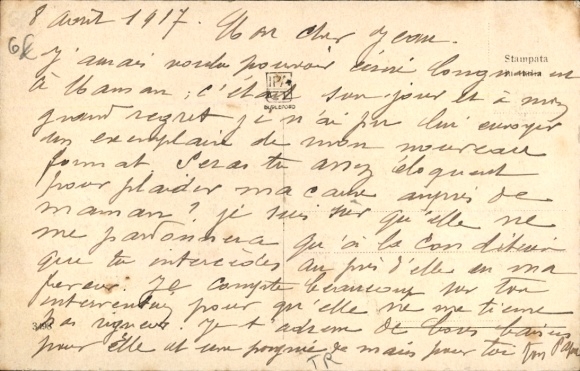 8 août 1917. Mon cher Jean.
J'aurais voulu pouvoir écrire longuement
à Maman ; c'était son jour et à mon
grand regret je n'ai pu lui envoyer
un exemplaire de mon nouveau
format Seras tu assez éloquent
pour plaider ma cause auprès de
maman? je suis sûr qu'elle ne
me pardonnera qu'à la condition
que tu intercèdes auprès d'elle en ma
faveur. Je compte beaucoup sur ton
pour qu'elle ne me tienne
pas rigueur. Je t'adresse de bons baisers
pour elle et une poignée de mais pour toi ton Papa
Stampata
IPA
TR